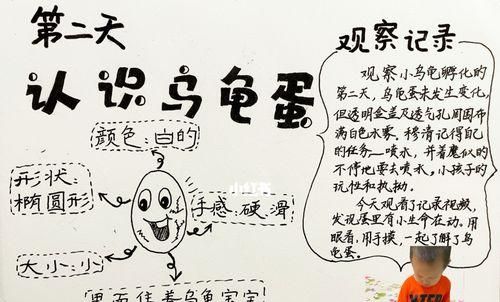 第二天
认识乌龟蛋
颜色:白的
形状:
椭圆形
手感:硬、滑
大小:小
里面住着乌龟宝宝
小红书
观察记录
观察小乌龟孵化的
第二天,乌龟蛋未发生变化,
但透明盒盖及透气孔周围布
满白色水雾。穆清记得自己
的任务—喷水,并着魔似的
不停地要去喷水。小孩子的
玩性和执拗。
今天观看了记录视频,
发现蛋里有小生命在动。用
眼看,用手摸,一起了解了乌
龟蛋。